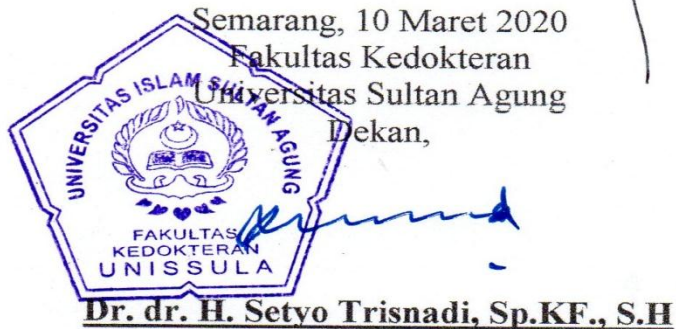 Semarang, 10 Maret 2020
Fakultas Kedokteran
Universitas Sultan Agung
Dekan,
UNIVERSITAS ISLAM SULTAN AGUNG
FAKULTAS
KEDOKTERAN
UNISSULA
Dr. dr. H. Setyo Trisnadi, Sp.KF., S.H